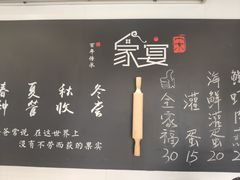 百年传承
家宴
春种 夏管 秋收 冬尝
爷爷常说 在这世上
没有不劳而获的果实
全家福 30
灌蛋 15
海鲜灌蛋 20